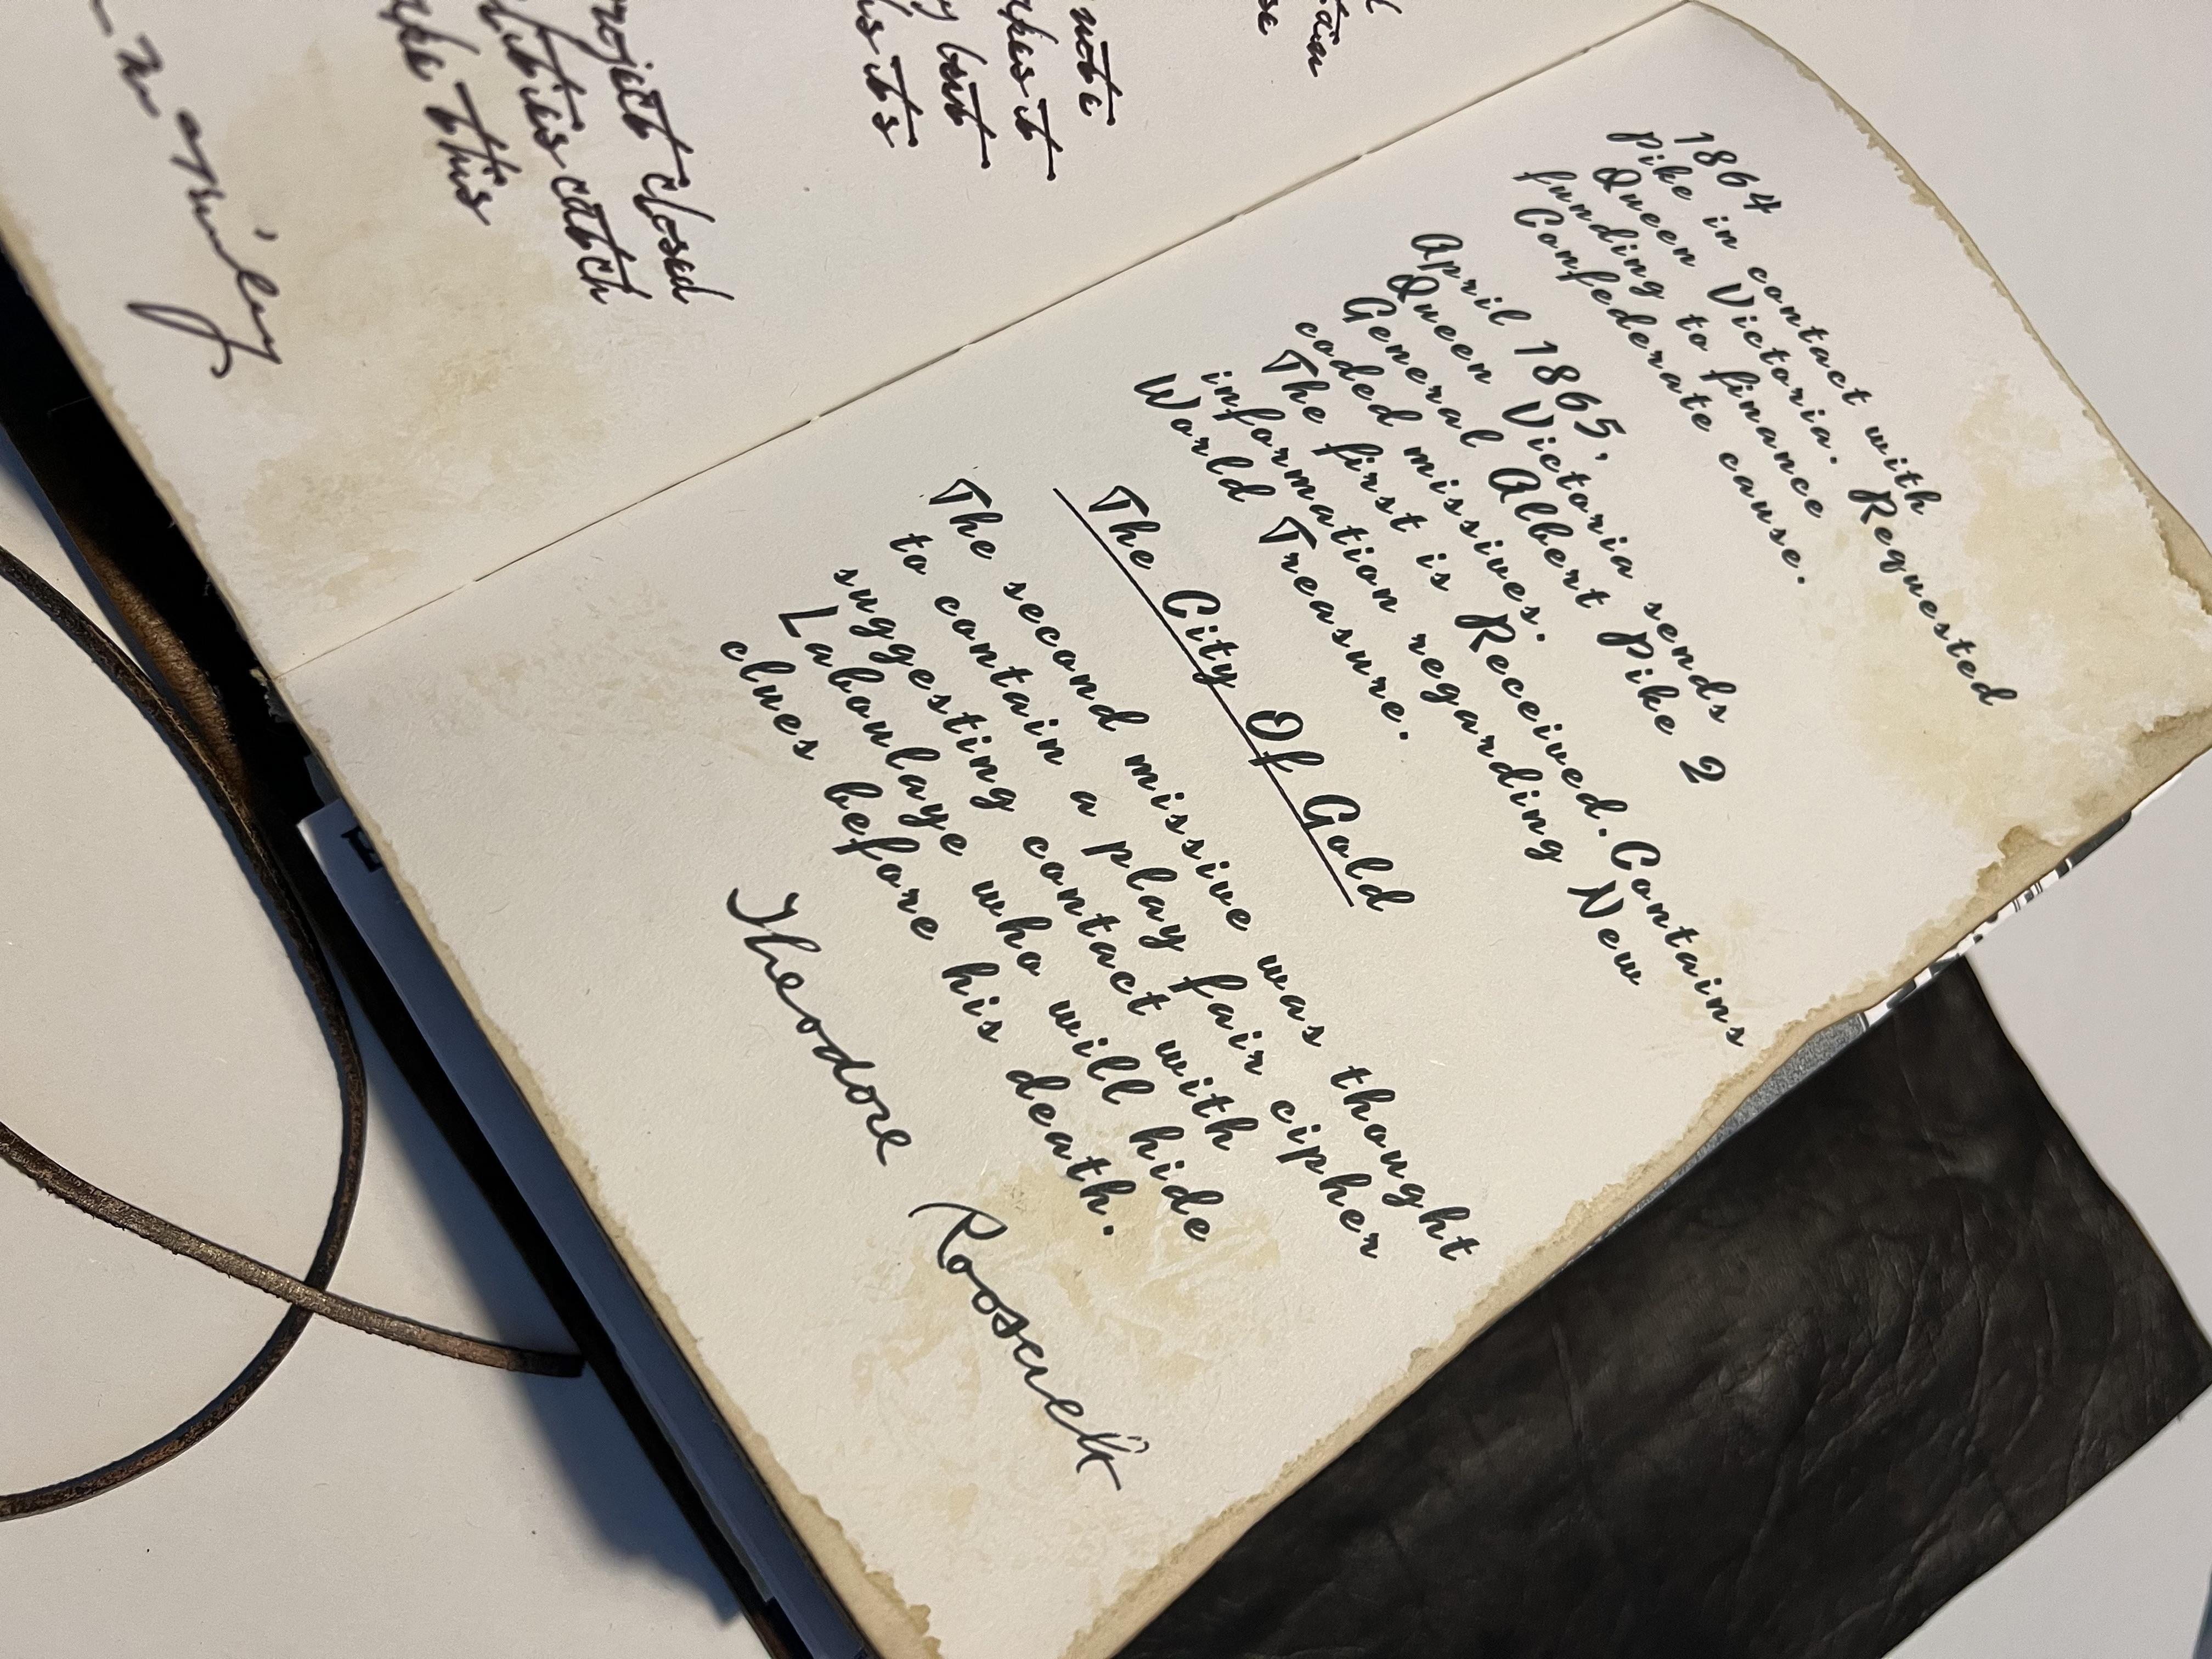 project closed
catch
this
note
1864
Pike in contact with
Queen Victoria. Requested
funding to finance
Confederate cause.
April 1865,
Queen Victoria sends
General Albert Pike 2
coded missives.
The first is Received. Contains
information regarding New
World Treasure.
The City Of Gold
The second missive was thought
to contain a play fair cipher
suggesting contact with
Laboulaye who will hide
clues before his death.
Theodore Roosevelt